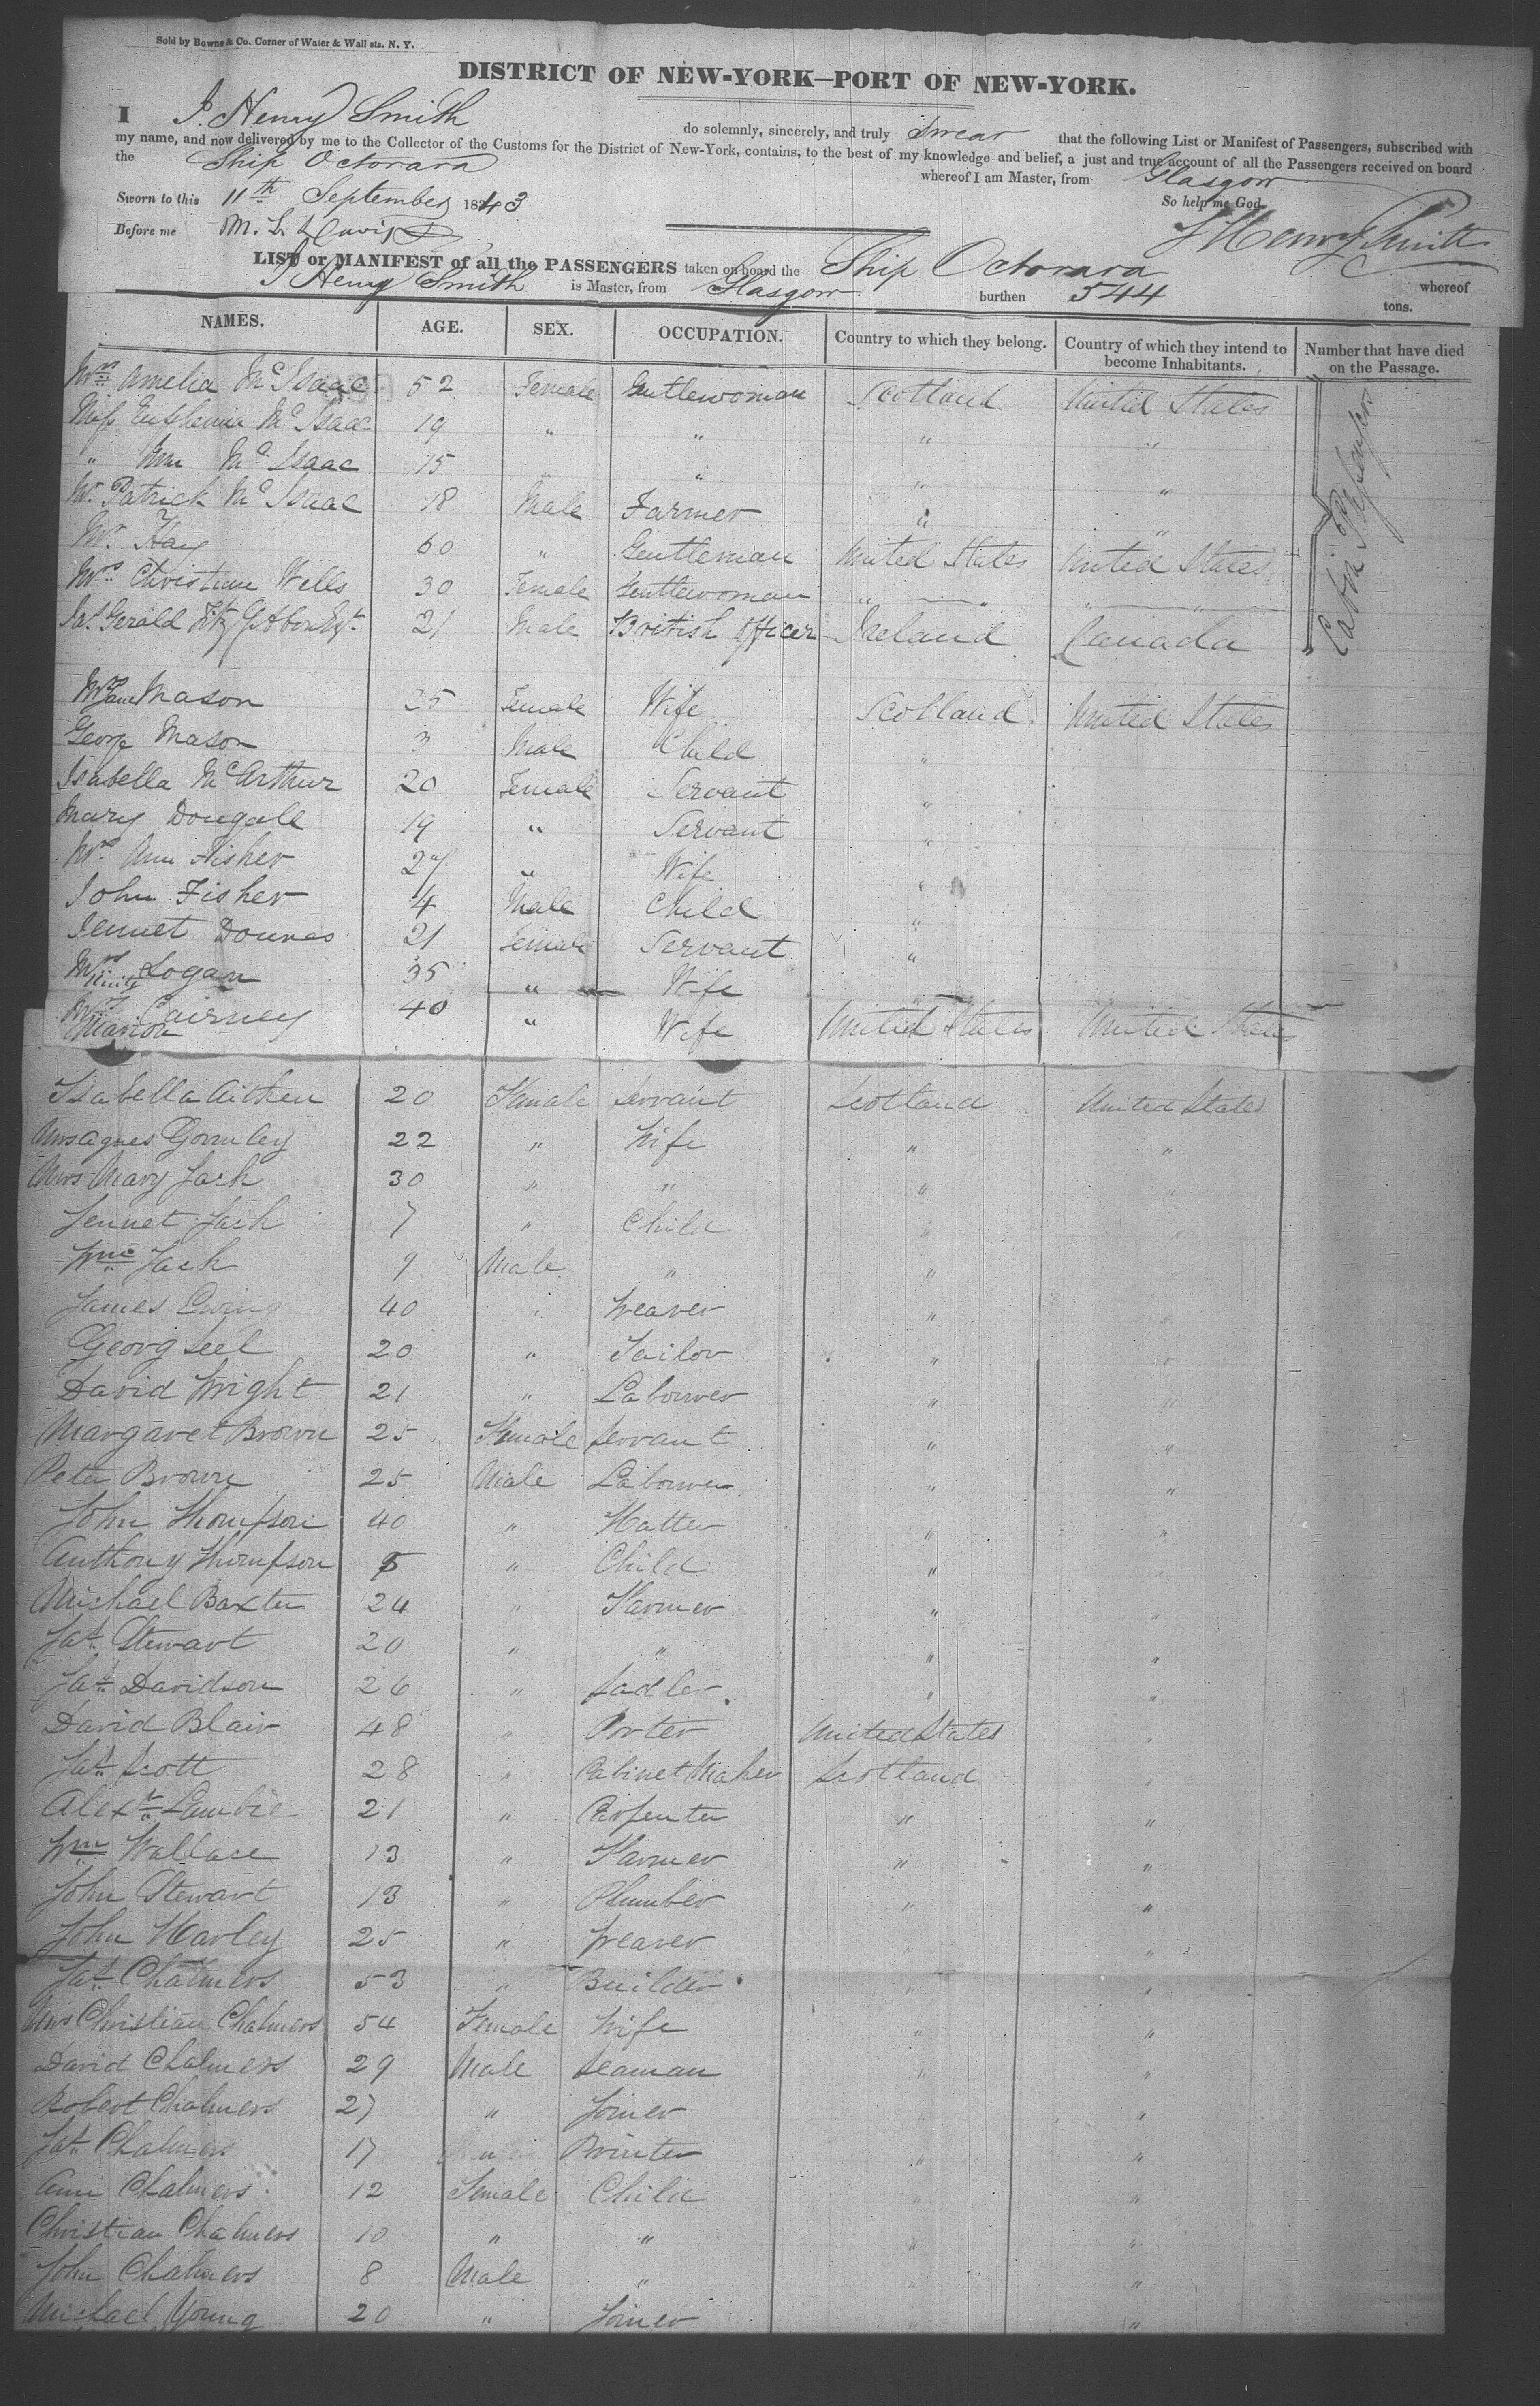 Sold by Bowne & Co. Corner of Water & Wall sts. N. Y.
DISTRICT OF NEW-YORK—PORT OF NEW-YORK.
I J. Henry Smith do solemnly, sincerely, and truly Swear that the following List or Manifest of Passengers, subscribed with
my name, and now delivered by me to the Collector of the Customs for the District of New-York, contains, to the best of my knowledge and belief, a just and true account of all the Passengers received on board
the Ship Octorara whereof I am Master, from Glasgow
Sworn to this 11th September 1843 So help me God.
Before me M. L. Davis J Henry Smith
LIST or MANIFEST of all the PASSENGERS taken on board the Ship Octorara whereof
J Henry Smith is Master, from Glasgow burthen 544 tons.
NAMES. AGE. SEX. OCCUPATION. Country to which they belong. Country of which they intend to become Inhabitants. Number that have died on the Passage.
Mrs Amelia McIsaac 52 Female Gentlewoman Scotland United States
Miss Euphemia McIsaac 19 " " " "
" Ann McIsaac 15 " " " "
Mr Patrick McIsaac 18 Male Farmer " "
Mr. Hay 60 " Gentleman United States United States
Mrs. Christian Wells 30 Female Gentlewoman " " " "
Jas. Gerald FitzGibbon Esq. 21 Male British Officer Ireland Canada
Cabin Passengers
Mrs Jane Mason 25 Female Wife Scotland United States
George Mason 3 Male Child "
Isabella McArthur 20 Female Servant "
Mary Dougall 19 " Servant "
Mrs. Ann Fisher 27 " Wife "
John Fisher 4 Male Child "
Jennet Downes 21 Female Servant "
Mrs Logan 35 " Wife
Mrs Marion Cairney 40 " Wife United States United States
Isabella Aitken 20 Female Servant Scotland United States
Mrs Agnes Gormley 22 " Wife " "
Mrs Mary Jack 30 " " " "
Jennet Jack 7 " Child " "
Wm Jack 9 Male " " "
James Ewing 40 " Weaver " "
Georg Leel 20 " Tailor " "
David Wright 21 " Labourer " "
Margaret Brown 25 Female Servant " "
Peter Brown 25 Male Labourer " "
John Thompson 40 " Hatter " "
Anthony Thompson 5 " Child " "
Michael Baxter 24 " Farmer " "
Jas. Stewart 20 " " " "
Jas. Davidson 26 " Sadler " "
David Blair 48 " Porter United States "
Jas. Scott 28 " Cabinet Maker Scotland "
Alexr. Lambie 21 " Carpenter " "
Wm Wallace 13 " Farmer " "
John Stewart 13 " Plumber " "
John Harley 25 " Weaver " "
Jas. Chalmers 53 " Builder " "
Mrs Christian Chalmers 54 Female Wife " "
David Chalmers 29 Male Seaman " "
Robert Chalmers 27 " Joiner " "
Jas. Chalmers 17 " Printer " "
Ann Chalmers 12 Female Child " "
Christian Chalmers 10 " " " "
John Chalmers 8 Male " " "
Michael Young 20 " Joiner " "